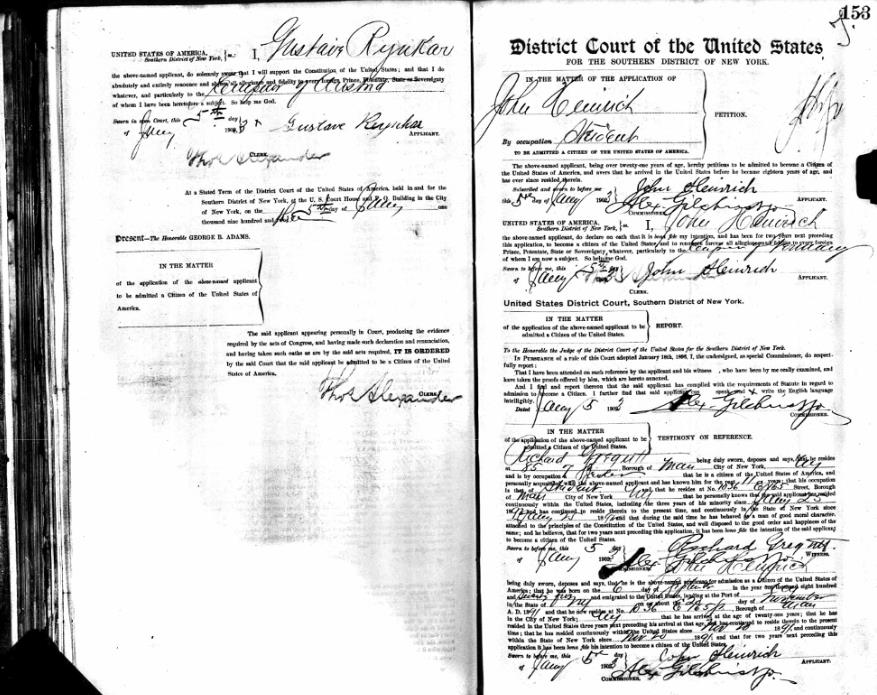 UNITED STATES OF AMERICA,
Southern District of New York, } ss.: I, Gustav Rynikar
the above-named applicant, do solemnly swear that I will support the Constitution of the United States; and that I do
absolutely and entirely renounce and abjure all allegiance and fidelity to every foreign Prince, Potentate, State or Sovereignty
whatever, and particularly the Emperor of Austria
of whom I have been heretofore a subject. So help me God.
Sworn in open Court, this 5th day
of Jany 1903 Gustave Rynikar APPLICANT.
Thos Alexander CLERK.
At a Stated Term of the District Court of the United States of America, held in and for the
Southern District of New York, at the U. S. Court House and P. O. Building in the City
of New York, on the 5th day of Jany one
thousand nine hundred and
Present—The Honorable GEORGE B. ADAMS.
IN THE MATTER
of the application of the above-named applicant
to be admitted a Citizen of the United States of
America.
The said applicant appearing personally in Court, producing the evidence
required by the acts of Congress, and having made such declaration and renunciation,
and having taken such oaths as are by the said acts required, IT IS ORDERED
by the said Court that the said applicant be admitted to be a Citizen of the United
States of America.
Thos Alexander CLERK.
153
District Court of the United States
FOR THE SOUTHERN DISTRICT OF NEW YORK.
IN THE MATTER OF THE APPLICATION OF
John Heinrich
PETITION.
By occupation Student
TO BE ADMITTED A CITIZEN OF THE UNITED STATES OF AMERICA.
The above-named applicant, being over twenty-one years of age, hereby petitions to be admitted to become a Citizen of
the United States, and avers that he arrived in the United States before he became eighteen years of age, and
has ever since resided therein.
Subscribed and sworn to before me John Heinrich
this 5th day of Jany 1903 APPLICANT.
Alex Gilchrist Jr. COMMISSIONER.
UNITED STATES OF AMERICA,
Southern District of New York, } ss.: I, John Heinrich
the above-named applicant, do declare on oath that it is bona fide my intention, and has been for two years next preceding
this application, to become a citizen of the United States, and to renounce forever all allegiance and fidelity to every foreign
Prince, Potentate, State or Sovereignty, whatever, particularly to the Emperor of Germany
of whom I am now a subject. So help me God.
Sworn to before me, this 5th day
of Jany 1903 John Heinrich APPLICANT.
CLERK.
United States District Court, Southern District of New York.
IN THE MATTER
of the application of the above-named applicant to be
admitted a Citizen of the United States.
REPORT.
To the Honorable the Judge of the District Court of the United States for the Southern District of New York.
IN PURSUANCE of a rule of this Court adopted January 18th, 1896, I, the undersigned, as special Commissioner, do respect-
fully report:
That I have been attended on such reference by the applicant and his witness , who have been by me really examined, and
have taken the proofs offered by him, which are hereto annexed.
And I find and report thereon that the said applicant has complied with the requirements of Statute in regard to
admission to become a Citizen. I further find that said applicant can speak and write the English language
intelligibly.
Dated Jany 5 1903 Alex Gilchrist Jr. COMMISSIONER.
IN THE MATTER
of the application of the above-named applicant to be
admitted a Citizen of the United States.
TESTIMONY ON REFERENCE.
Richard being duly sworn, deposes and says, that he resides
at 85 Borough of Man City of New York,
and is by occupation a that he is a citizen of the United States of America, and
personally acquainted with the above-named applicant and has known him for the years; that his occupation
is that of Student and that he resides at No. 1036 Street, Borough
of Man City of New York that he personally knows the said applicant has resided
continuously within the United States, including the three years of his minority since
and has continued to reside therein to the present time, and continuously in the State of New York since
and that during the said time he has behaved as a man of good moral character,
attached to the principles of the Constitution of the United States, and well disposed to the good order and happiness of the
same; and he believes, that for two years next preceding this application, it has been bona fide the intention of the said applicant
to become a citizen of the United States.
Sworn to before me, this 5 day Richard
of Jany 1903 WITNESS.
Alex Gilchrist Jr. COMMISSIONER.
John Heinrich
being duly sworn, deposes and says, that he is the above-named applicant for admission as a Citizen of the United States of
America; that he was born on the 6 day of in the year eighteen hundred
and and emigrated to the United States, landing at the Port of
in the State of NY on or about the day of November
A. D. 1891 and that he now resides at No. 1036 Borough of Man
in the City of New York; that he has arrived at the age of twenty-one years; that he has
resided in the United States three years next preceding his arrival at that age, and has continued to reside therein to the present
time; that he has resided continuously within the United States since Nov 20 1891, and continuously
within the State of New York since Nov 20 1891, and that for two years next preceding this
application it has been bona fide his intention to become a citizen of the United States.
Sworn to before me, this 5th day John Heinrich
of Jany 1903 APPLICANT.
Alex Gilchrist Jr.
COMMISSIONER.